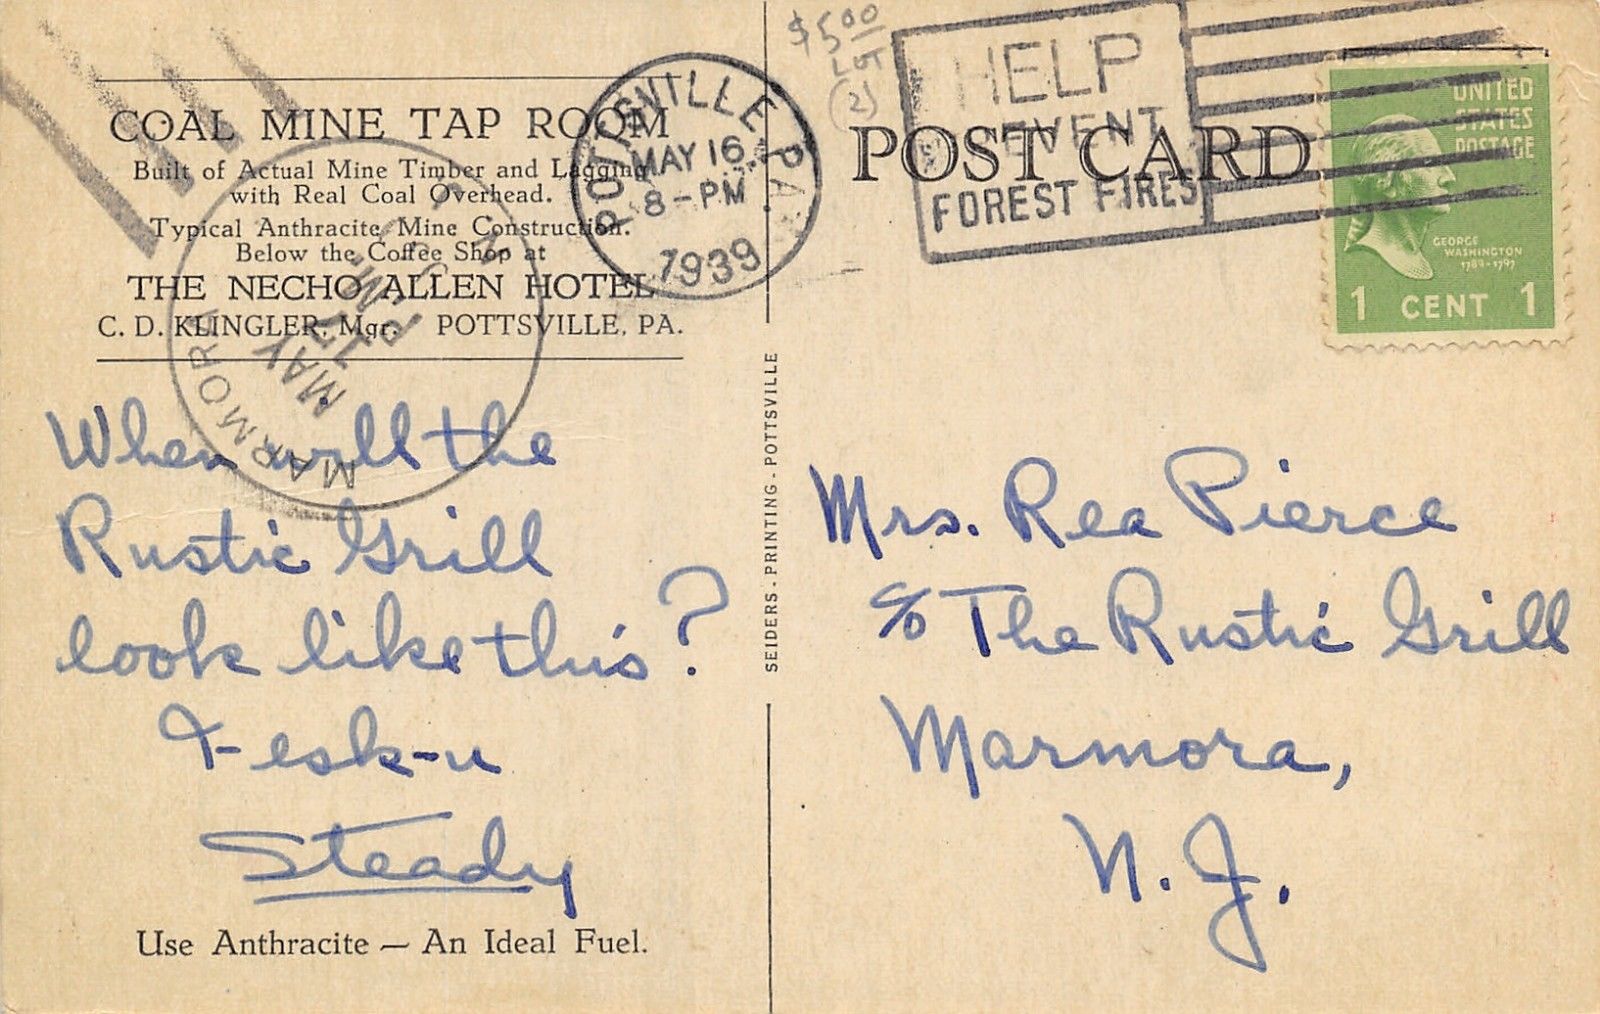 COAL MINE TAP ROOM
Built of Actual Mine Timber and Lagging
with Real Coal Overhead.
Typical Anthracite Mine Construction.
Below the Coffee Shop at
THE NECHO ALLEN HOTEL
C. D. KLINGLER, Mgr. POTTSVILLE, PA.
MARMORA
MAY
17
P M
N. J.
When will the
Rustic Grill
look like this?
I-esk-u
Steady
Use Anthracite — An Ideal Fuel.
SEIDERS - PRINTING - POTTSVILLE
POTTSVILLE PA
MAY 16
8-PM
1939
$5.00
LOT
(2)
HELP
PREVENT
FOREST FIRES
POST CARD
UNITED
STATES
POSTAGE
GEORGE
WASHINGTON
1789-1797
1 CENT 1
Mrs. Rea Pierce
c/o The Rustic Grill
Marmora,
N. J.